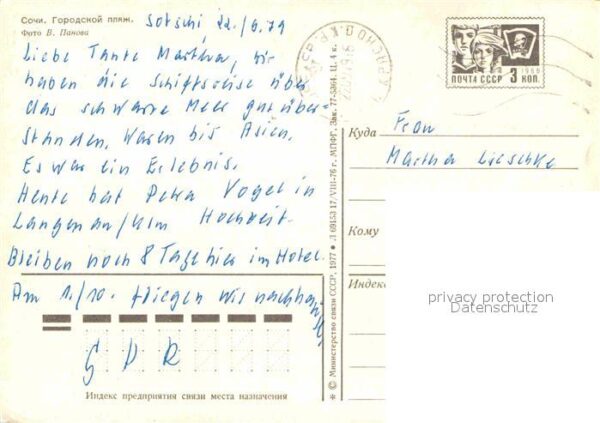 Сочи. Городской пляж.
Фото В. Панова
Sotschi 22./6.79
Liebe Tante Martha, wir
haben die Schiffsreise über
das schwarze Meer gut über-
standen. Waren bis Asien.
Es war ein Erlebnis.
Heute hat Petra Vogel in
Langenau/Ulm Hochzeit.
Bleiben noch 8 Tage hier im Hotel.
Am 1./10. fliegen wir nachhause
G D R
Индекс предприятия связи места назначения
* © Министерство связи СССР, 1977 • Л 69153 17/VIII-76 г. МПФГ. Зак. 77-5364. Ц. 4 к.
ПОЧТА СССР
1966
3 КОП.
Куда
Frau
Martha Lieschke
Кому
Индекс
privacy protection
Datenschutz